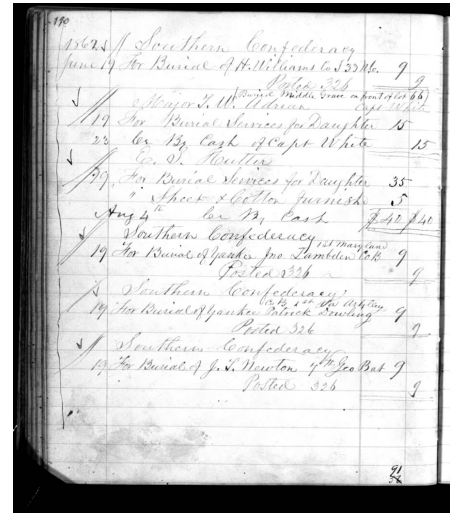 190
1862 Southern Confederacy
June 19 For Burial of H. Williams Co I 33 No. 9
Posted 326 9
(Buried Middle Grave on front of lot 66)
Major T. W. Capt White
19 For Burial Services for Daughter 15
23 Cr By Cash of Capt White 15
E. S. Hutter
19 For Burial Services for Daughter 35
" Sheet & Cotton furnish 5
Aug 4th Cr By Cash $40 $40
Southern Confederacy
1st Maryland
19 For Burial of Yankee Jno Lambden Co B 9
Posted 326 9
Southern Confederacy
Co B, 1st Va Artylery
19 For Burial of Yankee Patrick Dowling 9
Posted 326 9
Southern Confederacy
19 For Burial of J. T. Newton 7th Geo Bat 9
Posted 326 9
91